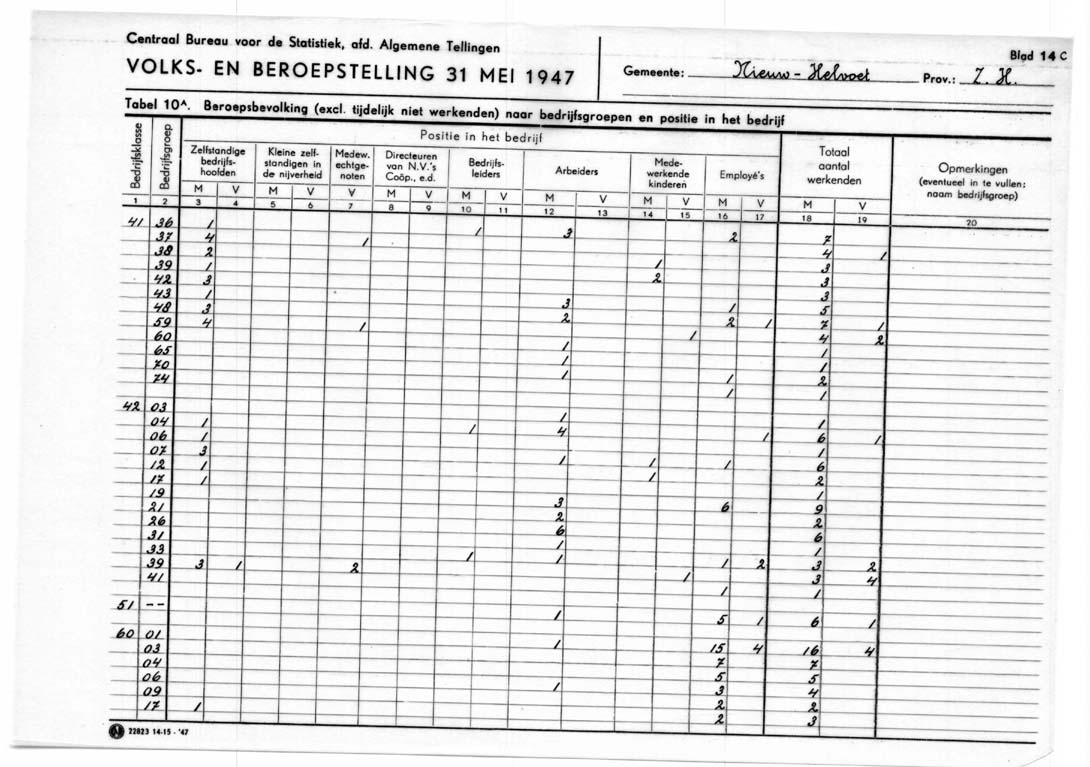 Centraal Bureau voor de Statistiek, afd. Algemene Tellingen
VOLKS- EN BEROEPSTELLING 31 MEI 1947
Gemeente: Nieuw-Helvoet Prov.: Z.H.
Blad 14 C
Tabel 10A. Beroepsbevolking (excl. tijdelijk niet werkenden) naar bedrijfsgroepen en positie in het bedrijf
Bedrijfsklasse
Bedrijfsgroep
Positie in het bedrijf
Zelfstandige
bedrijfs-
hoofden
Kleine zelf-
standigen in
de nijverheid
Medew.
echtge-
noten
Directeuren
van N.V.'s
Coöp., e.d.
Bedrijfs-
leiders
Arbeiders
Mede-
werkende
kinderen
Employé's
Totaal
aantal
werkenden
Opmerkingen
(eventueel in te vullen:
naam bedrijfsgroep)
M V M V V M V M V M V M V M V M V
1 2 3 4 5 6 7 8 9 10 11 12 13 14 15 16 17 18 19 20
41 36 1 1 3 2 7
37 4 1 4 1
38 2 1 3
39 1 2 3
42 3 3
43 1 3 1 5
48 3 2 2 1 7 1
59 4 1 1 4 2
60 1 1
65 1 1
70 1 1 2
74 1 1
42 03 1 1
04 1 1 4 1 6 1
06 1 1
07 3 1 1 1 6
12 1 1 2
17 1 1
19 3 6 9
21 2 2
26 6 6
31 1 1
33 1 1 1 2 3 2
39 3 1 2 1 3 4
41 1 1
51 -- 1 5 1 6 1
60 01 1 15 4 16 4
03 7 7
04 5 5
06 1 3 4
09 2 2
17 1 2 3
22823 14-15 - '47